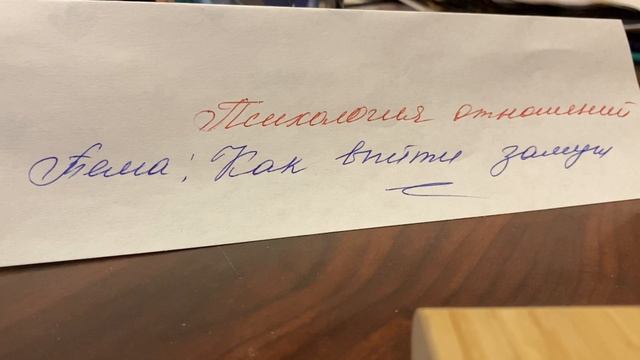 Психология отношений
Тема: Как выйти замуж